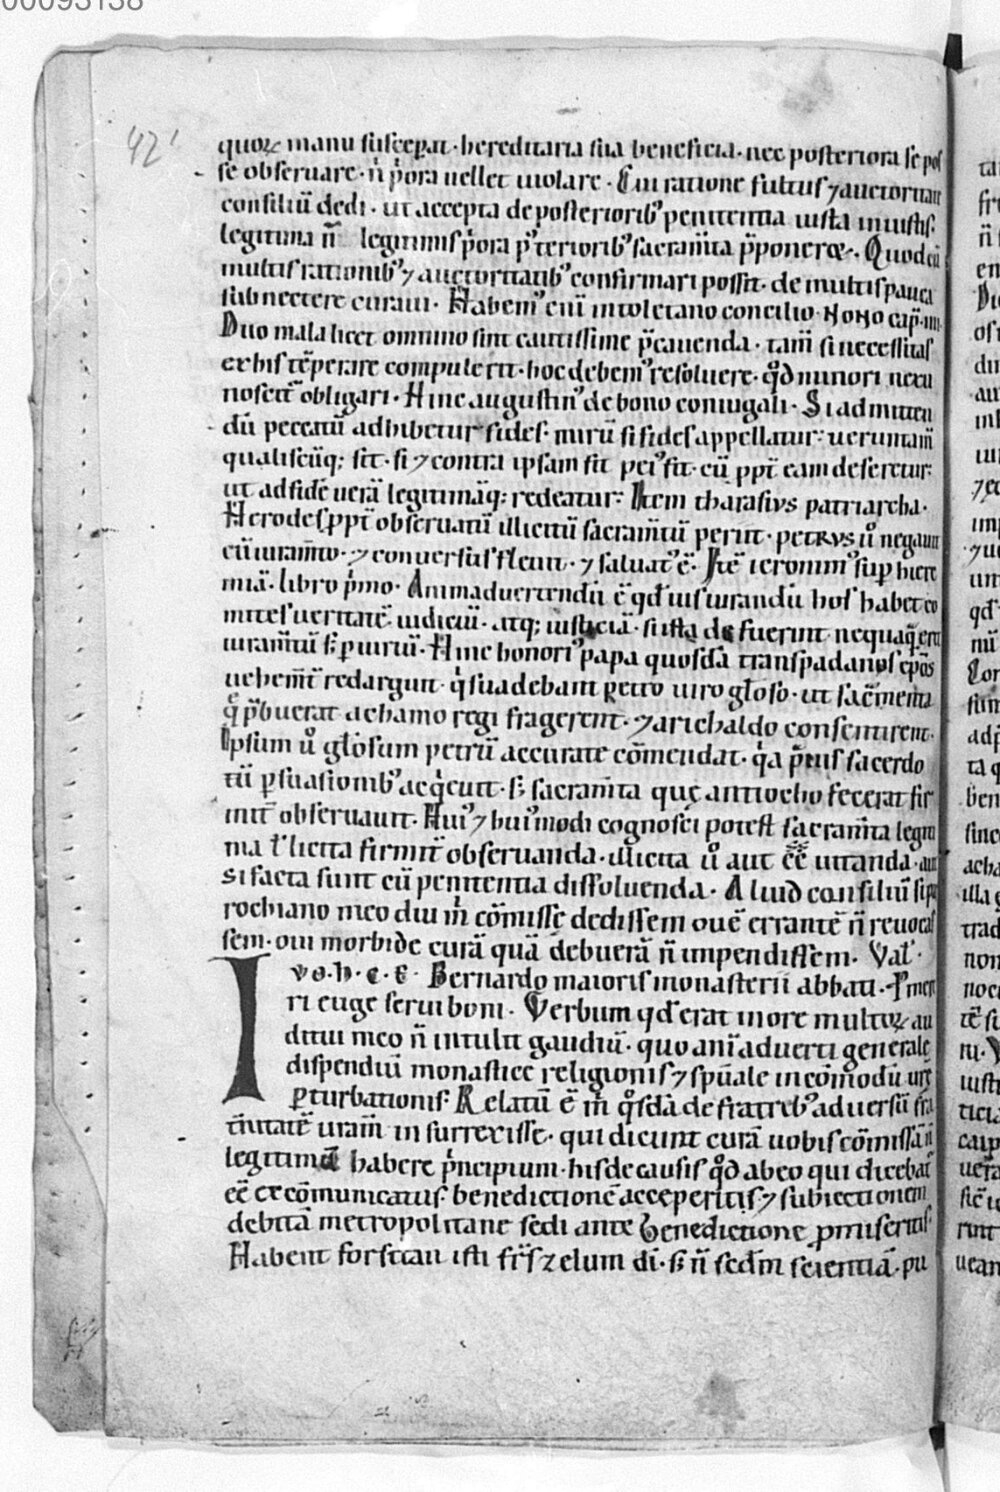 00093138
42'
quoꝝ manu susceꝑat · hereditaria sua beneficia · nec posteriora se pos
se obseruare · n̄ p̍ora uellet uiolare · Cui ratione fultus ⁊ auctoritate
consiliū dedi · ut accepta de posteriorib; penitentia iusta iniustis:
legitima n̄ legitimis p̍ora p̍terioribꝰ sacram̄ta p̄poneret · Quod cū
multis rationibꝰ ⁊ auctoritatibꝰ confirmari possit · de multis pauca
subnectere curaui · Habemꝰ eni in toletano concilio NONO cap̄ · iiii ·
Duo mala licet omnino sint cautissime p̄cauenda · tam̄ si necessitas
ex his tēperare compulerit · hoc debemꝰ resoluere · qd̄ minori nexu
noscit̄ obligari · Hinc augustinꝰ de bono coniugali · Si ad mitten
dū peccatū adhibetur fides: mirū si fides appellatur: ueruntam̄
qualiscūq; sit · si ⁊ contra ipsam fit peiꝰ fit · cū ꝓpt̄ eam deseretur:
ut ad fidē uerā legitimāq; redeatur: Item tharasiVS patriarcha ·
Herodes ꝓpt̄ obseruatū illicitū sacram̄tū perut · PETRVS u̍o negauit
cū iuram̄to · ⁊ conuersus fleuit · ⁊ saluatꝰ ē · Itē ieronimꝰ sup̄ hiere
miā · libro p̍mo · Animaduertendū ē qd̄ ius iurandū hos habet co
mites ueritatē · iudiciū · atq; iusticiā · si ista defuerint nequaq̄ erit
iuram̄tū s; ꝑiuriū · Hinc honoriꝰ papa quosdā transpadanos ep̄os
uehem̄t̄ redarguit · q̍ suadebant petro uiro gl̄oso · ut sac̄menta
q̄ p̄buerat achamo regi frangerent · ⁊ arichaldo consentirent ·
Ipsum u̍o gl̄osum petrū accurate cōmendat · q̍a p̄uis sacerdo
tū ꝑsuasionibꝰ acq̍euit · s; sacram̄ta quę antiocho fecerat fir
mit̄ obseruauit · Huiꝰ ⁊ huiꝰmodi cognosci potest sacram̄ta legiti
ma ł licita firmit̄ obseruanda · illicita u̍o aut ēē uitanda · aut
si facta sunt cū penitentia dissoluenda · Aliud consiliū si pa
rochiano meo diu m̍ cōmisse dedissem ouē errantē n̄ reuocas
sem · oui morbide curā quā debuerā n̄ impendissem · Val̄ ·
Ivo · h · c · ē · Bernardo maioris monasterii abbati ·
ri euge serui boni · Verbum qd̄ erat in ore multoꝝ au
ditui meo n̄ intulit gaudiū · quo anīaduerti generale
dispendiū monasticę religionis ⁊ sp̄uale incōmodū ur̄ę
ꝑturbationis: Relatū ē m̍ q̊sdā de fratrib; aduersū fra
t̄nitatē uram̄ insurrexisse · qui dicunt curā uobis cōmissā n̄
legitimū habere p̍ncipium · his de causis qd̄ ab eo qui dicebat̄
ēē excōmunicatus: benedictionē acceperitis: ⁊ subiectionem
debitā metropolitanę sedi ante benedictionē ꝓmiseritis:
Habent forsitan isti fr̄s zelum dī · s; n̄ sedm̄ scientiā · pu